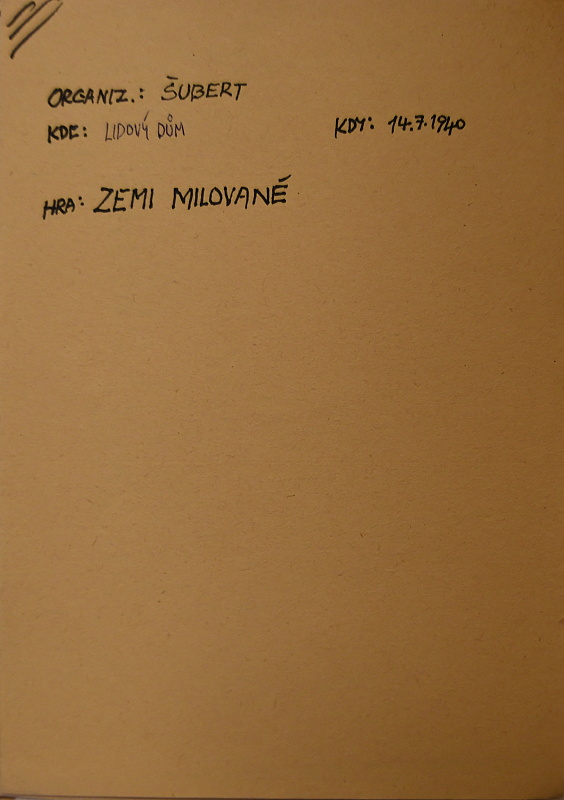 ORGANIZ.: ŠUBERT
KDE: LIDOVÝ DŮM KDY: 14.7.1940
HRA: ZEMI MILOVANÉ